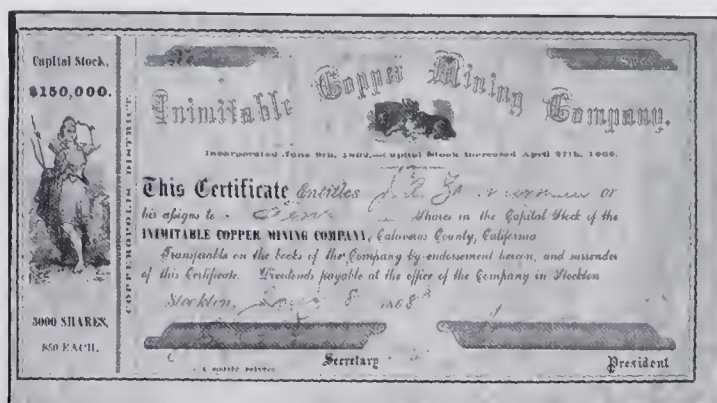 Capital Stock,
$150,000.
3000 SHARES,
$50 EACH.
COPPEROPOLIS DISTRICT.
Inimitable Copper Mining Company.
Incorporated June 9th, Capital Stock Increased April 27th,
This Certificate Entitles or
his assigns to Shares in the Capital Stock of the
INIMITABLE COPPER MINING COMPANY, Calaveras County, California
Transferable on the books of the Company by endorsement hereon, and surrender
of this Certificate. Dividends payable at the office of the Company in Stockton
Stockton, 8 1868
Secretary
President